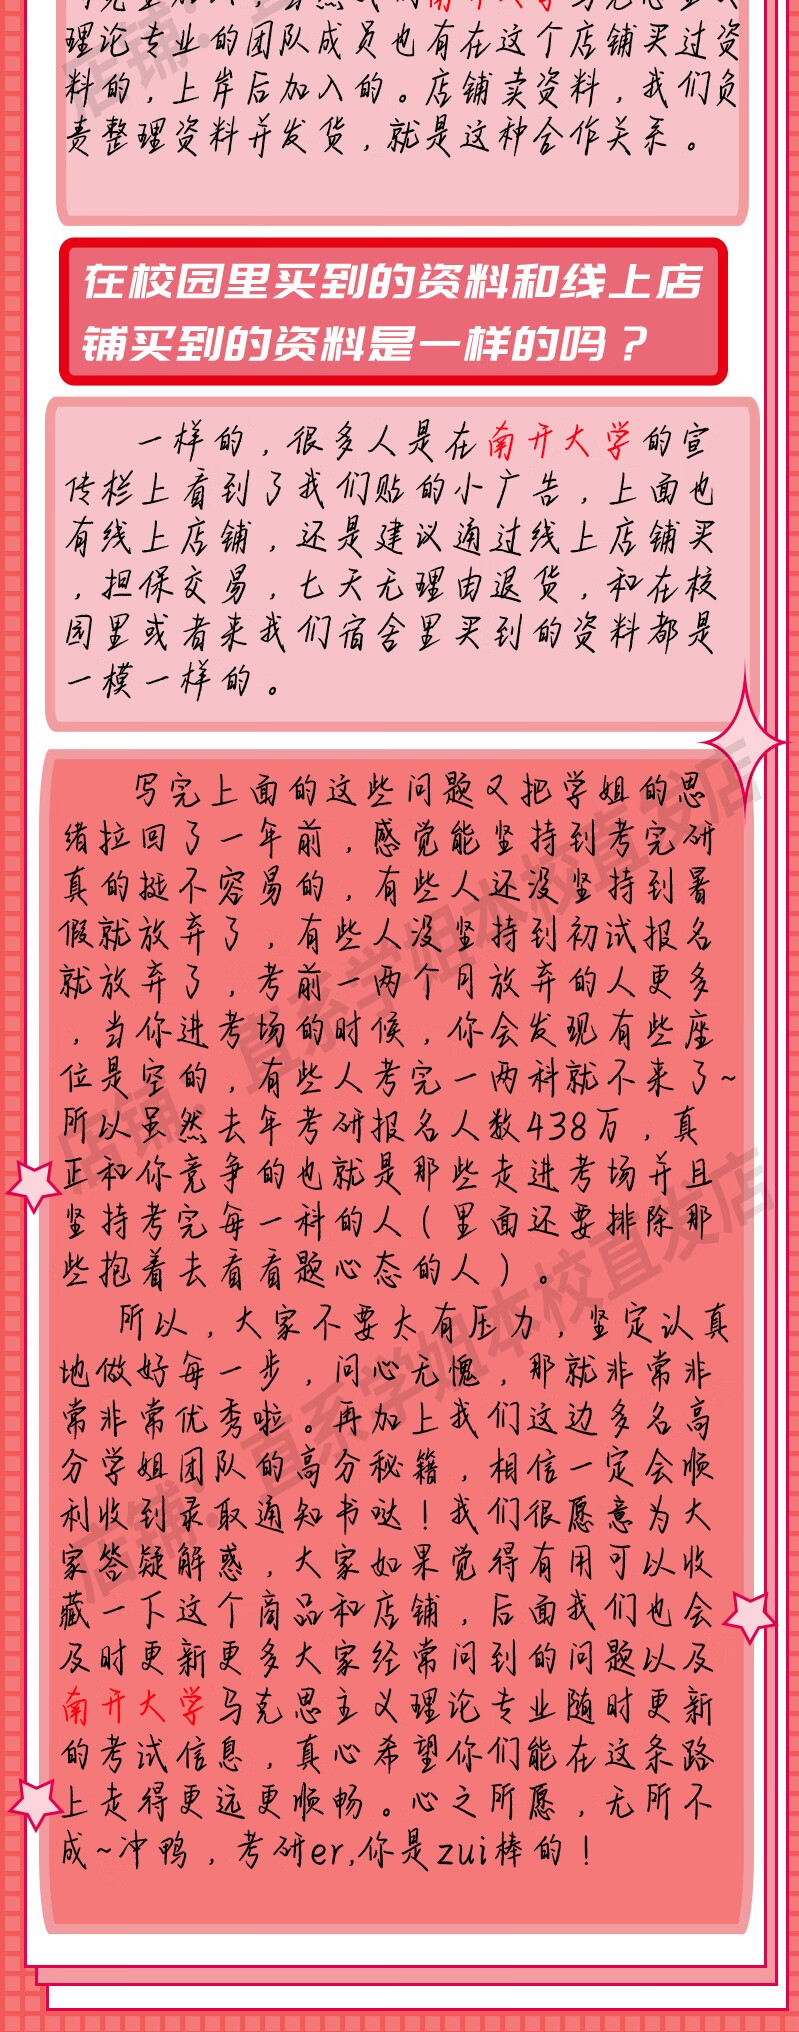 理论专业的团队成员也有在这个店铺买过资
料的，上岸后加入的。店铺卖资料，我们负
责整理资料并发货，就是这种合作关系。
在校园里买到的资料和线上店
铺买到的资料是一样的吗？
一样的，很多人是在南开大学的宣
传栏上看到了我们贴的小广告，上面也
有线上店铺，还是建议通过线上店铺买
，担保交易，七天无理由退货，和在校
园里或者来我们宿舍里买到的资料都是
一模一样的。
写完上面的这些问题又把学姐的思
绪拉回了一年前，感觉能坚持到考完研
真的挺不容易的，有些人还没坚持到暑
假就放弃了，有些人没坚持到初试报名
就放弃了，考前一两个月放弃的人更多
，当你进考场的时候，你会发现有些座
位是空的，有些人考完一两科就不来了~
所以虽然去年考研报名人数438万，真
正和你竞争的也就是那些走进考场并且
坚持考完每一科的人（里面还要排除那
些抱着去看看题心态的人）。
所以，大家不要太有压力，坚定认真
地做好每一步，问心无愧，那就非常非
常非常优秀啦。再加上我们这边多名高
分学姐团队的高分秘籍，相信一定会顺
利收到录取通知书哒！我们很愿意为大
家答疑解惑，大家如果觉得有用可以收
藏一下这个商品和店铺，后面我们也会
及时更新更多大家经常问到的问题以及
南开大学马克思主义理论专业随时更新
的考试信息，真心希望你们能在这条路
上走得更远更顺畅。心之所愿，无所不
成~冲鸭，考研er,你是zui棒的！
店铺：直系学姐本校直发店
店铺：直系学姐本校直发店